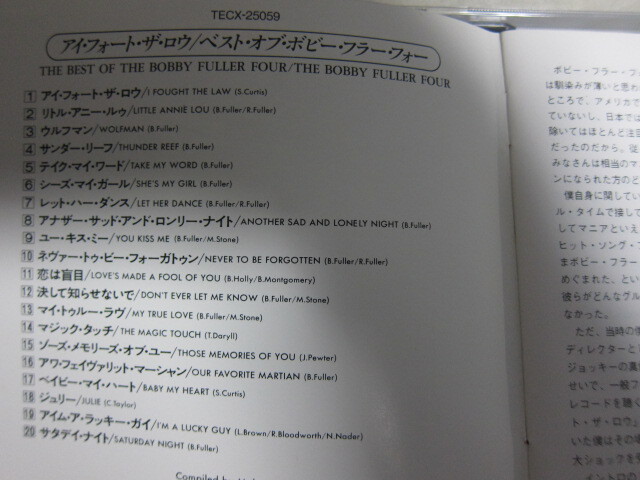 TECX-25059
アイ・フォート・ザ・ロウ/ベスト・オブ・ボビー・フラー・フォー
THE BEST OF THE BOBBY FULLER FOUR/THE BOBBY FULLER FOUR
1 アイ・フォート・ザ・ロウ/I FOUGHT THE LAW (S.Curtis)
2 リトル・アニー・ルゥ/LITTLE ANNIE LOU (B.Fuller/R.Fuller)
3 ウルフマン/WOLFMAN (B.Fuller)
4 サンダー・リーフ/THUNDER REEF (B.Fuller)
5 テイク・マイ・ワード/TAKE MY WORD (B.Fuller)
6 シーズ・マイ・ガール/SHE'S MY GIRL (B.Fuller)
7 レット・ハー・ダンス/LET HER DANCE (B.Fuller/R.Fuller)
8 アナザー・サッド・アンド・ロンリー・ナイト/ANOTHER SAD AND LONELY NIGHT (B.Fuller)
9 ユー・キス・ミー/YOU KISS ME (B.Fuller/M.Stone)
10 ネヴァー・トゥ・ビー・フォーガトゥン/NEVER TO BE FORGOTTEN (B.Fuller/R.Fuller)
11 恋は盲目/LOVE'S MADE A FOOL OF YOU (B.Holly/B.Montgomery)
12 決して知らせないで/DON'T EVER LET ME KNOW (B.Fuller/M.Stone)
13 マイ・トゥルー・ラヴ/MY TRUE LOVE (B.Fuller/M.Stone)
14 マジック・タッチ/THE MAGIC TOUCH (T.Daryll)
15 ゾーズ・メモリーズ・オブ・ユー/THOSE MEMORIES OF YOU (J.Pewter)
16 アワ・フェイヴァリット・マーシャン/OUR FAVORITE MARTIAN (B.Fuller)
17 ベイビー・マイ・ハート/BABY MY HEART (S.Curtis)
18 ジュリー/JULIE (C.Taylor)
19 アイム・ア・ラッキー・ガイ/I'M A LUCKY GUY (L.Brown/R.Bloodworth/N.Nader)
20 サタデイ・ナイト/SATURDAY NIGHT (B.Fuller)
Compiled by
ボビー・フラー・フ
は馴染みが薄いと思わ
ところで、アメリカで
ていないし、日本では
除いてはほとんど注目
だったのだから。従
みなさんは相当のマ
ンになられた方のど
僕自身に関してい
ル・タイムで接して
してマニアといえ
ヒット・ソング・
まボビー・フラー
めぐまれた、とい
彼らがどんなグル
なかった。
ただ、当時の僕
ディレクターと
ジョッキーの真
せいで、一般フ
レコードを聴く
ト・ザ・ロウ」
いた僕はその場
大ショックを受
イントロの